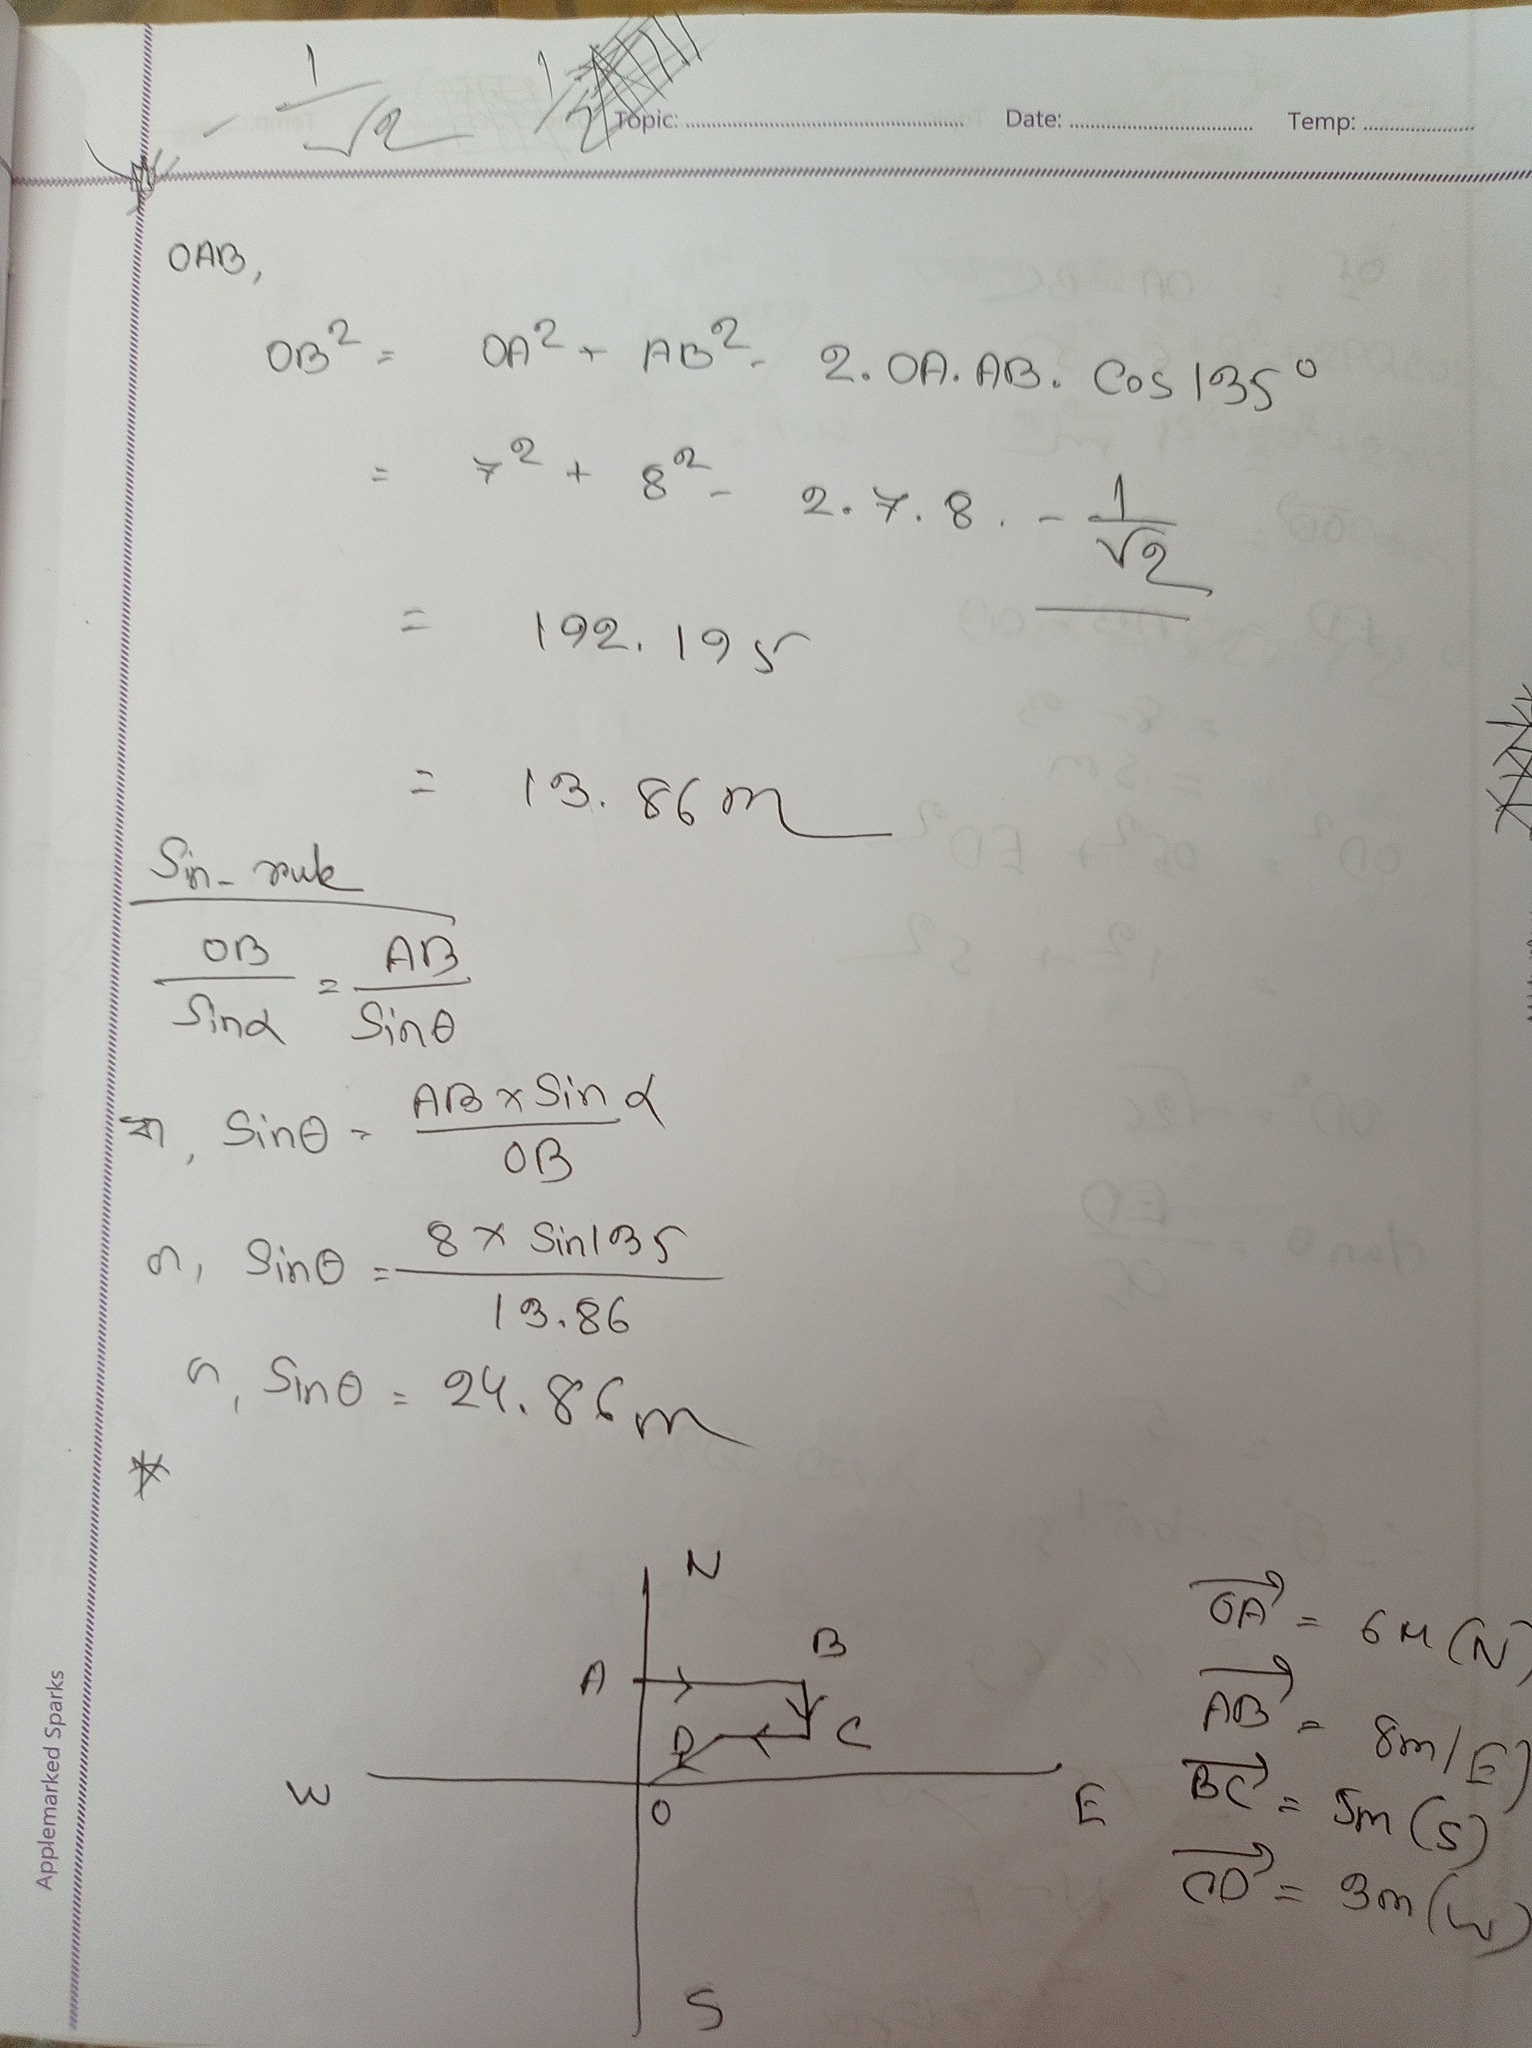 - 1/√2 1/2
Topic: ........ Date: ........ Temp: ........
OAB,
OB² = OA² + AB² - 2.OA.AB. Cos 135°
= 7² + 8² - 2.7.8. - 1/√2
= 192.195
= 13.86 m
Sin- rule
OB/Sinα = AB/Sinθ
বা, Sinθ = AB x Sin α/OB
বা, Sinθ = 8 x Sin135/13.86
বা, Sinθ = 24.86 m
*
N
A B
D C
W O E
S
OA = 6M (N)
AB = 8m (E)
BC = 5m (S)
CD = 3m (W)
Applemarked Sparks